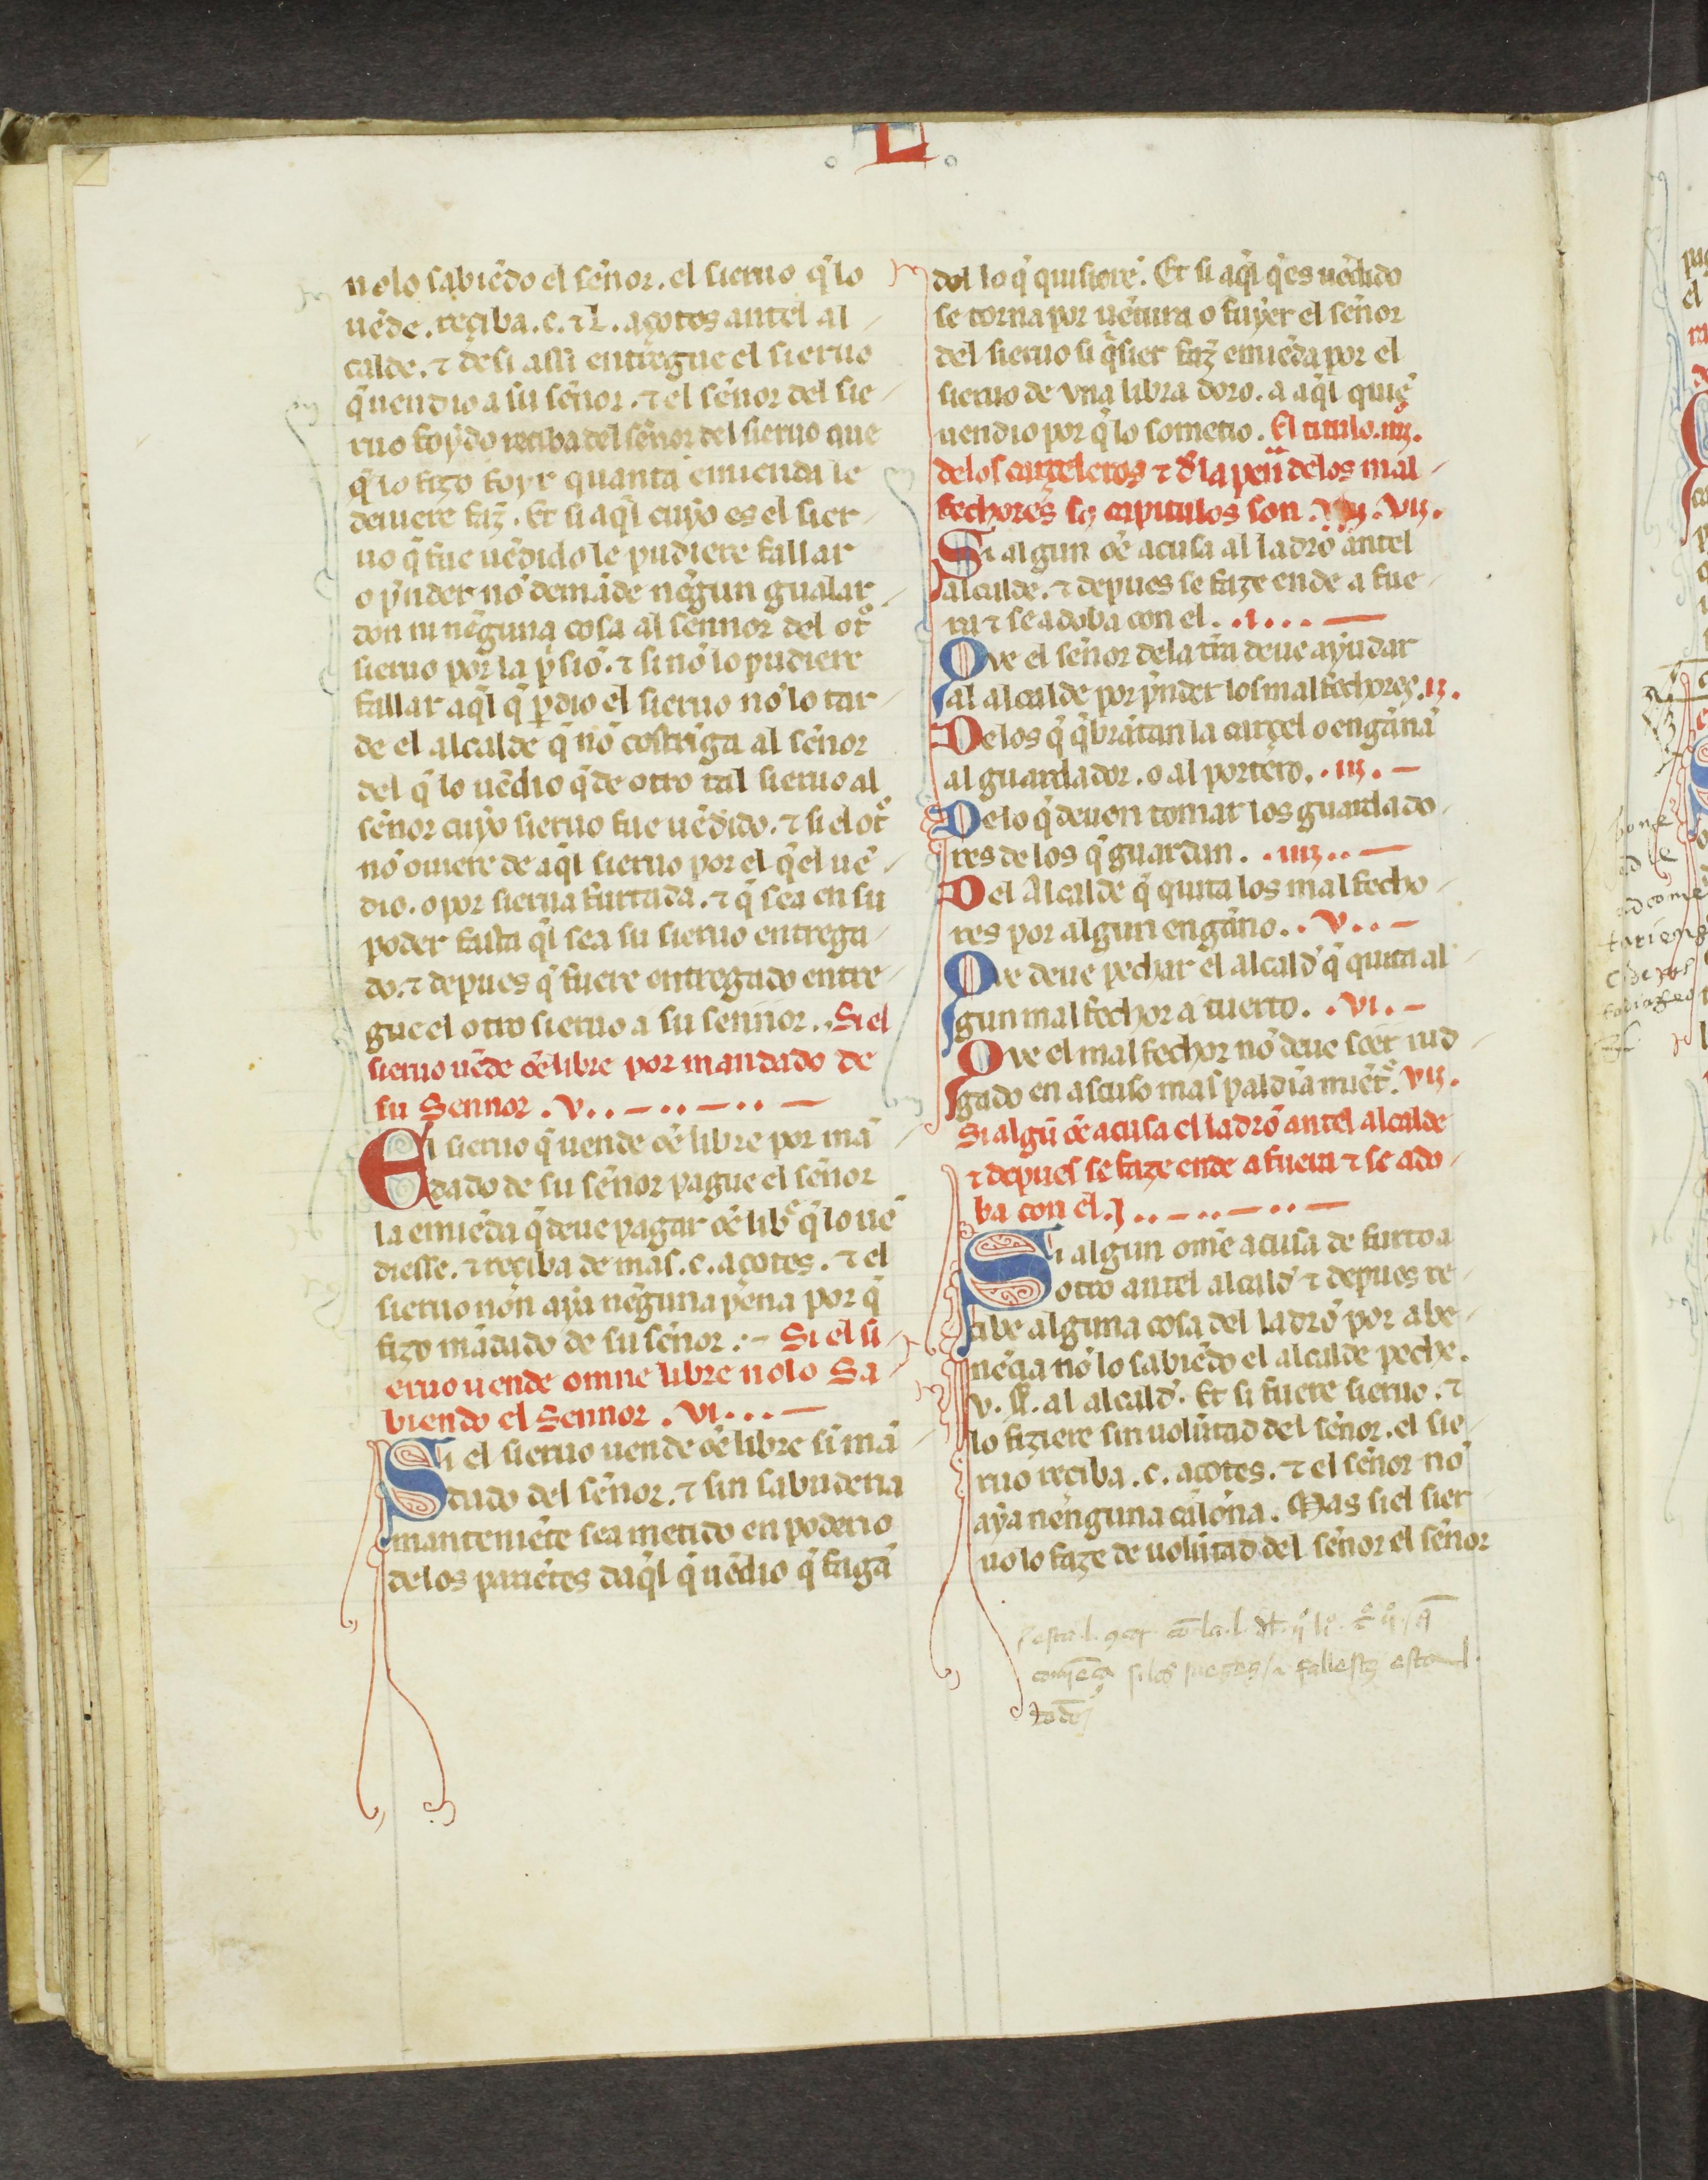 L
nolo sabiẽdo el sẽnor. el sieruo q̃ lo
uẽde. reçiba .c. ⁊ L. açotes antel al
calde. ⁊ desi assi entregue el sieruo
q̃ uendio a su sẽnor. ⁊ el sẽnor del sie
ruo foydo reciba del sẽnor del sieruo que
q̃ lo fizo foyr quanta emienda le
deuiere faz̃. Et si aq̃l cuyo es el sier
uo q̃ fue uẽdido le pudiere fallar
o p̃nder nõ demãde nẽgun gualar
don ni nẽguna cosa al sennor del otro
sieruo por la p̃sio. ⁊ si nõ lo pudiere
fallar aq̃l q̃ p̱dio el sieruo nõ lo tar
de el alcalde q̃ nõ costriga al sẽnor
del q̃ lo uẽdio q̃ de otro tal sieruo al
sẽnor cuyo sieruo fue uẽdido. ⁊ si el otro
nõ ouiere de aq̃l sieruo por el q̃ el uẽ
dio. o por sierua furtada. ⁊ q̃ sea en su
poder fasta q̃l sea su sieruo entrega
do. ⁊ depues q̃ fuere entregado entre
gue el otro sieruo a su sennor. Si el
sieruo uẽde oẽ libre por mandado de
su Sennor .v.
El sieruo q̃ uende oẽ libre por mã
dado de su sẽnor pague el sẽnor
la emiẽda q̃ deue pagar oẽ libro q̃ lo uẽ
diesse. ⁊ reçiba de mas .c. açotes. ⁊ el
sieruo non aya nẽguna pẽna por q̃
fizo mãdado de su sẽnor. Si el si
eruo uende omne libre nolo Sa
biendo el Sennor .vi.
Si el sieruo uende oẽ libre si mã
dado del sẽnor. ⁊ sin sabuderia
manteniẽte sea metido en poderio
delos pariẽtes daq̃l q̃ uẽdio q̃ fagã
del lo q̃ quisiere. Et si aq̃l q̃ es uẽdido
se torna por uẽtura o fuyer el sẽnor
del sieruo si q̃sier faz̃ emiẽda por el
sieruo de vna libra doro. a aq̃l quiẽ
uendio por q̃ lo sometio. El titulo .iiij.
delos carçeleros ⁊ d̃ la pena delos mal
fechores sꝯ capitulos son .vij.
Si algun oẽ acusa al ladrõ antel
alcalde. ⁊ depues se faze ende a fue
ra ⁊ se adoba con el. .i.
Qve el sẽnor dela tr̃ra deue ayudar
al alcalde por p̃nder los malfechores. ij.
Delos q̃ q̃brãtan la carçel o engãnã
al guardador. o al portero. .iij.
Delo q̃ deuen tomar los guardado
res de los q̃ guardan. .iiij.
Del Alcalde q̃ quita los malfecho
res por algun engãno. .v.
Qve deue pechar el alcald̃ q̃ quita al
gun malfechor a tuerto. .vi.
Qve el malfechor nõ deue seer iud
gado en ascuso mas paldiã muẽtro. vij.
Si algũ oẽ acusa el ladrõ antel alcalde
⁊ depues se faze ende a fuera ⁊ se ado
ba con el. j.
Si algun omẽ acusa de furto a
otro antel alcald̃ ⁊ depues re
cibe alguna cosa del ladrõ por abe
nẽcia nõ lo sabiẽdo el alcalde peche.
v. ss̃. al alcald̃. Et si fuere sieruo. ⁊
lo fiziere sin uolũtad del sẽnor. el sie
ruo reçiba .c. açotes. ⁊ el sẽnor nõ
aya nenguna calõna. Mas si el sier
uo lo faze de uolũtad del sẽnor el sẽnor